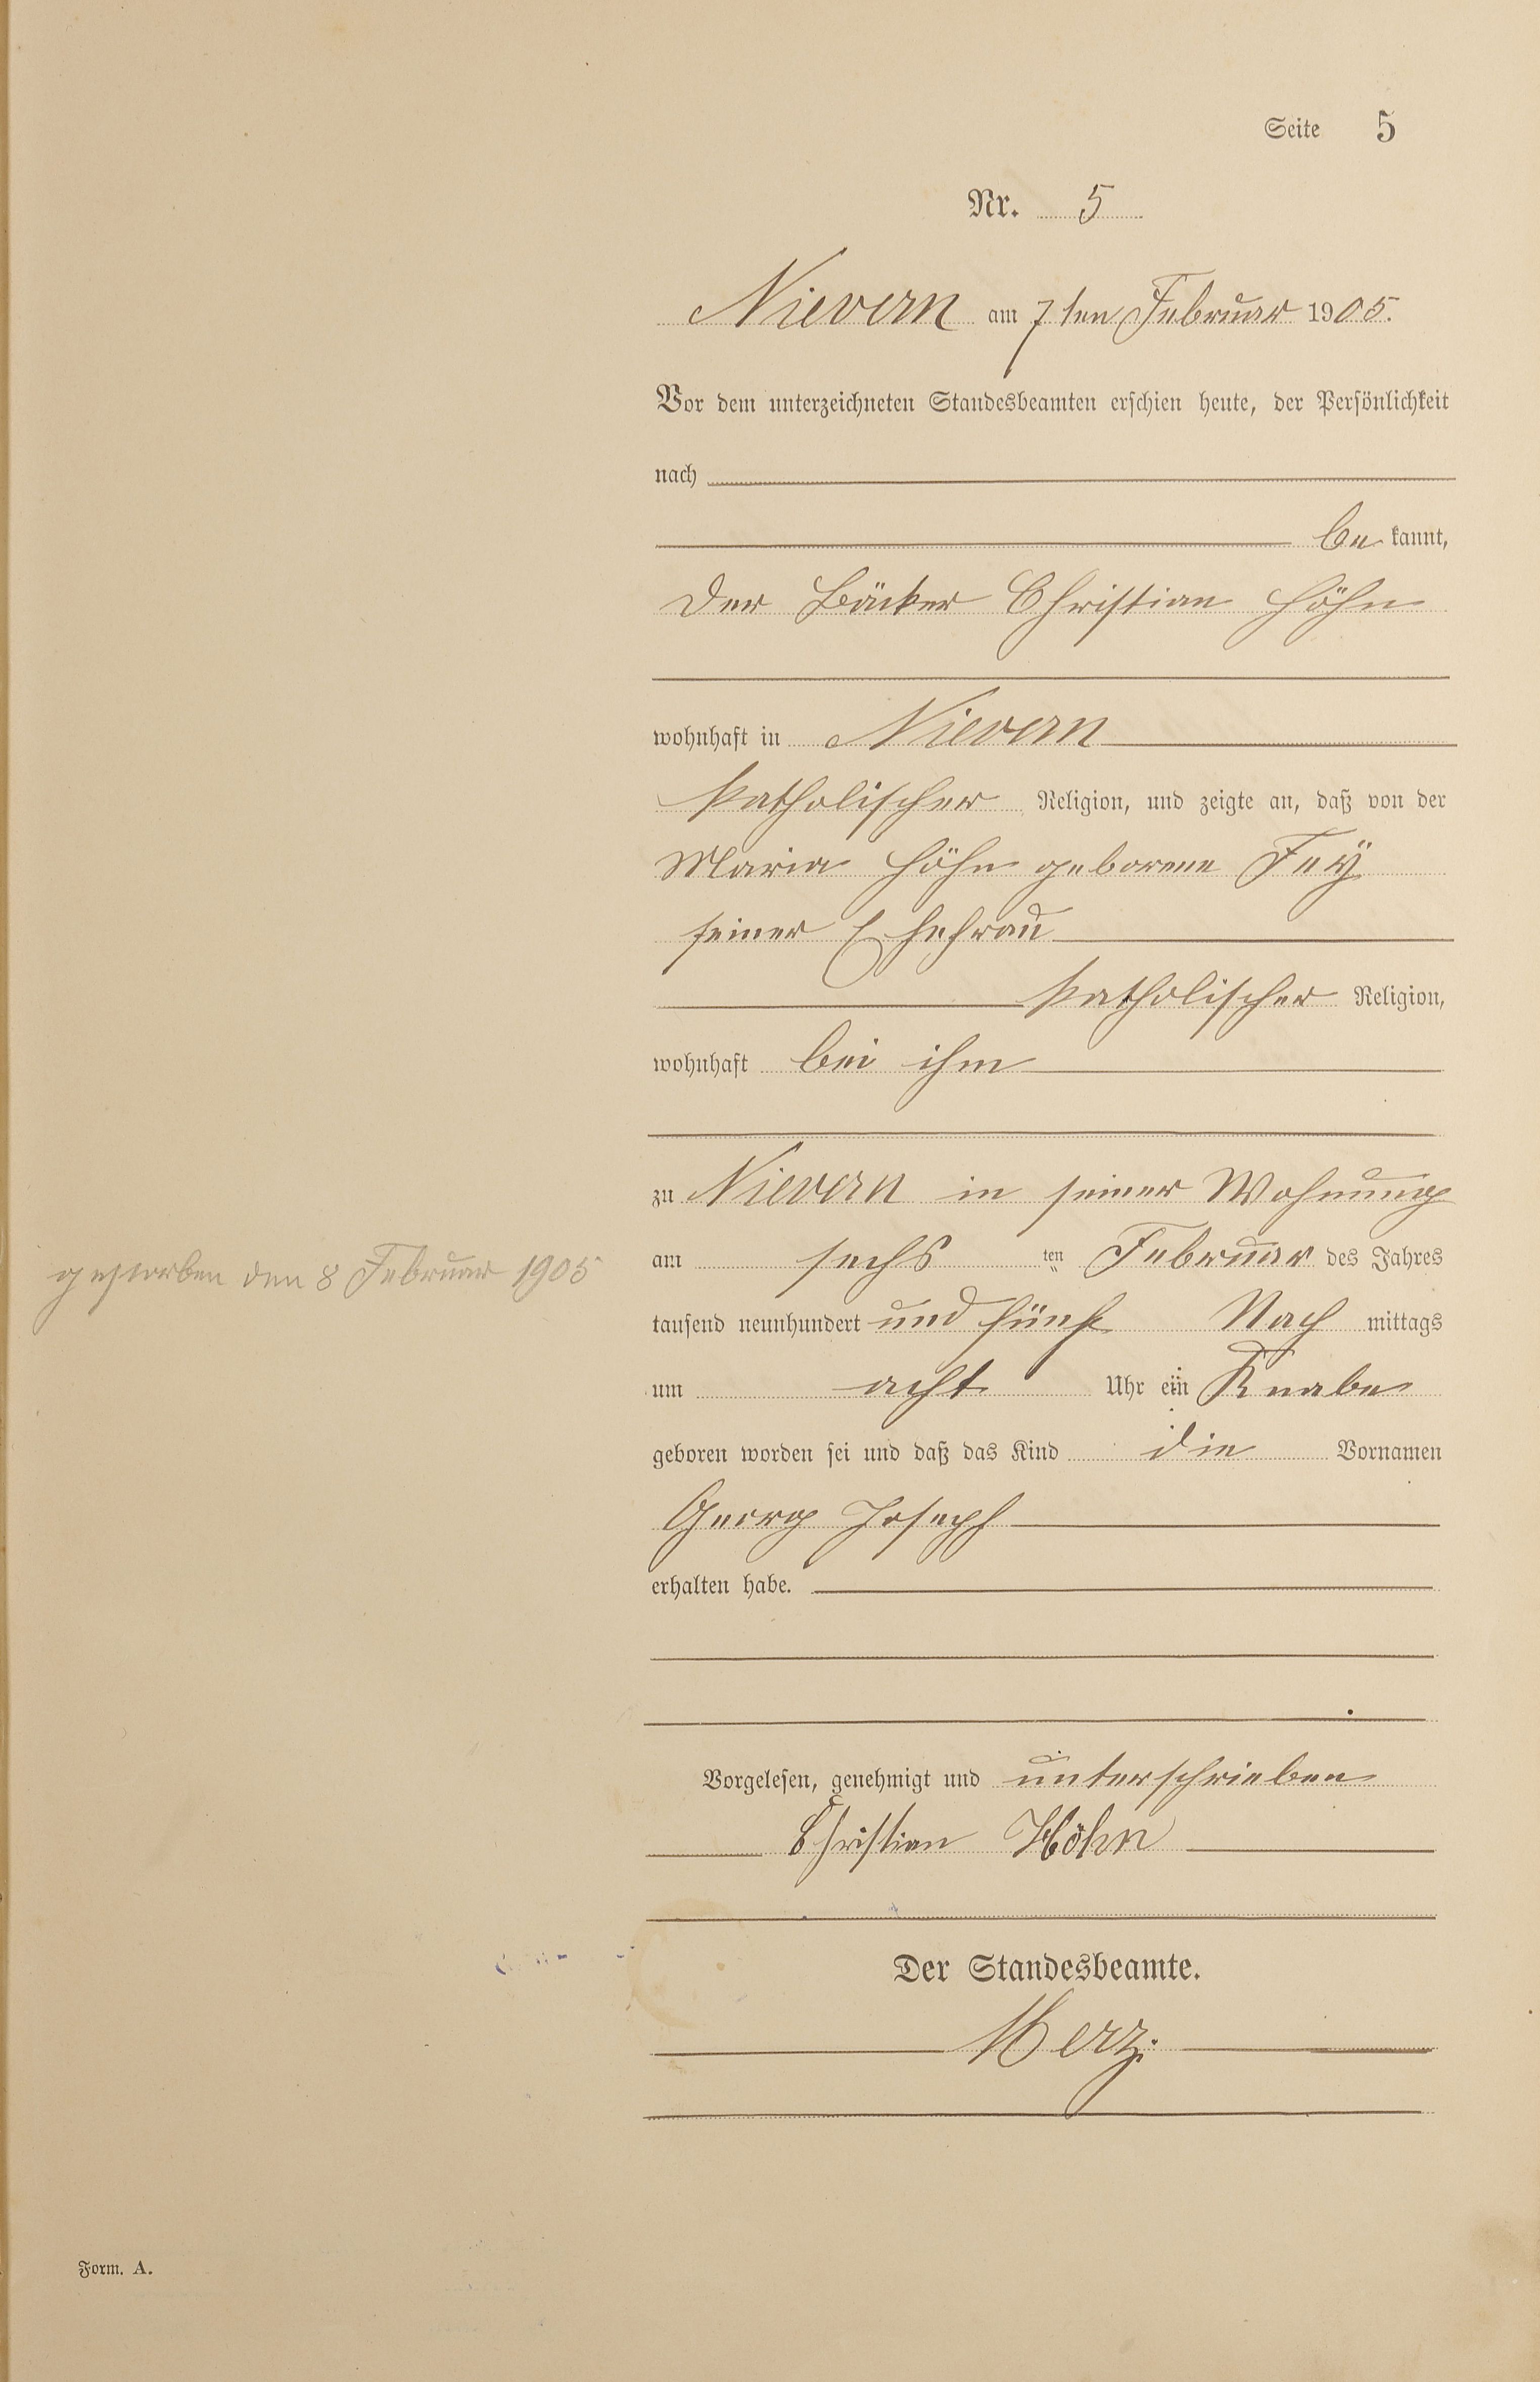 Seite 5
Nr. 5
Nievern am 7ten Februar 1905.
Vor dem unterzeichneten Standesbeamten erschien heute, der Persönlichkeit
nach
be kannt,
der Bäcker Christian Höhn
wohnhaft in Nievern
katholischer Religion, und zeigte an, daß von der
Maria Höhn geborene Feÿ
seiner Ehefrau
katholischer Religion,
wohnhaft bei ihm
zu Nievern in seiner Wohnung
am sechs ten Februar des Jahres
gestorben den 8 Februar 1905
tausend neunhundert und fünf Nach mittags
um acht Uhr ein Knabe
geboren worden sei und daß das Kind die Vornamen
Georg Joseph
erhalten habe.
Vorgelesen, genehmigt und unterschrieben
Christian Höhn
Der Standesbeamte.
Merz.
Form. A.